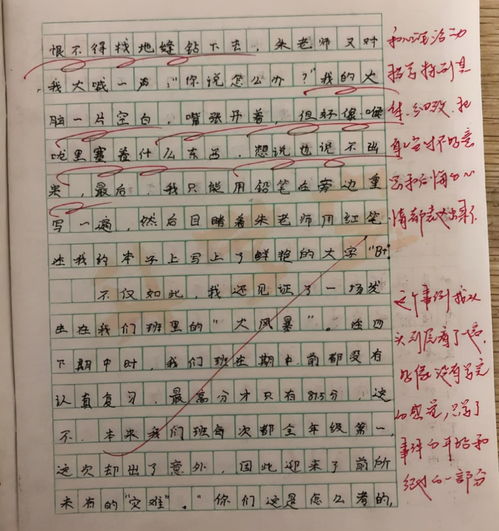 恨不得找地缝钻下去，朱老师又对
我大喊一声："你说怎么办？"我的大
脑一片空白，嘴张开着，但好像喉
咙里塞着什么东西，想说也说不出
来，最后，我只能用铅笔在旁边重
写一遍，然后目睹着朱老师用红笔
在我的本子上写上了鲜艳的大字"B+
不仅如此，我还见证了一场发
生在我们班里的"大风暴"。在四
下期中时，我们班在期中前都没有
认真复习，最高分才只有87.5分，这
不，本来我们班每次都全年级第一，
这次却出了意外，因此迎来了前所
未有的"灾难"。"你们这是怎么考的，
和心理活动
描写特别具
体、细致，把
后悔的心
情都表达出来了
这个事例
事件的开始和
的一部分